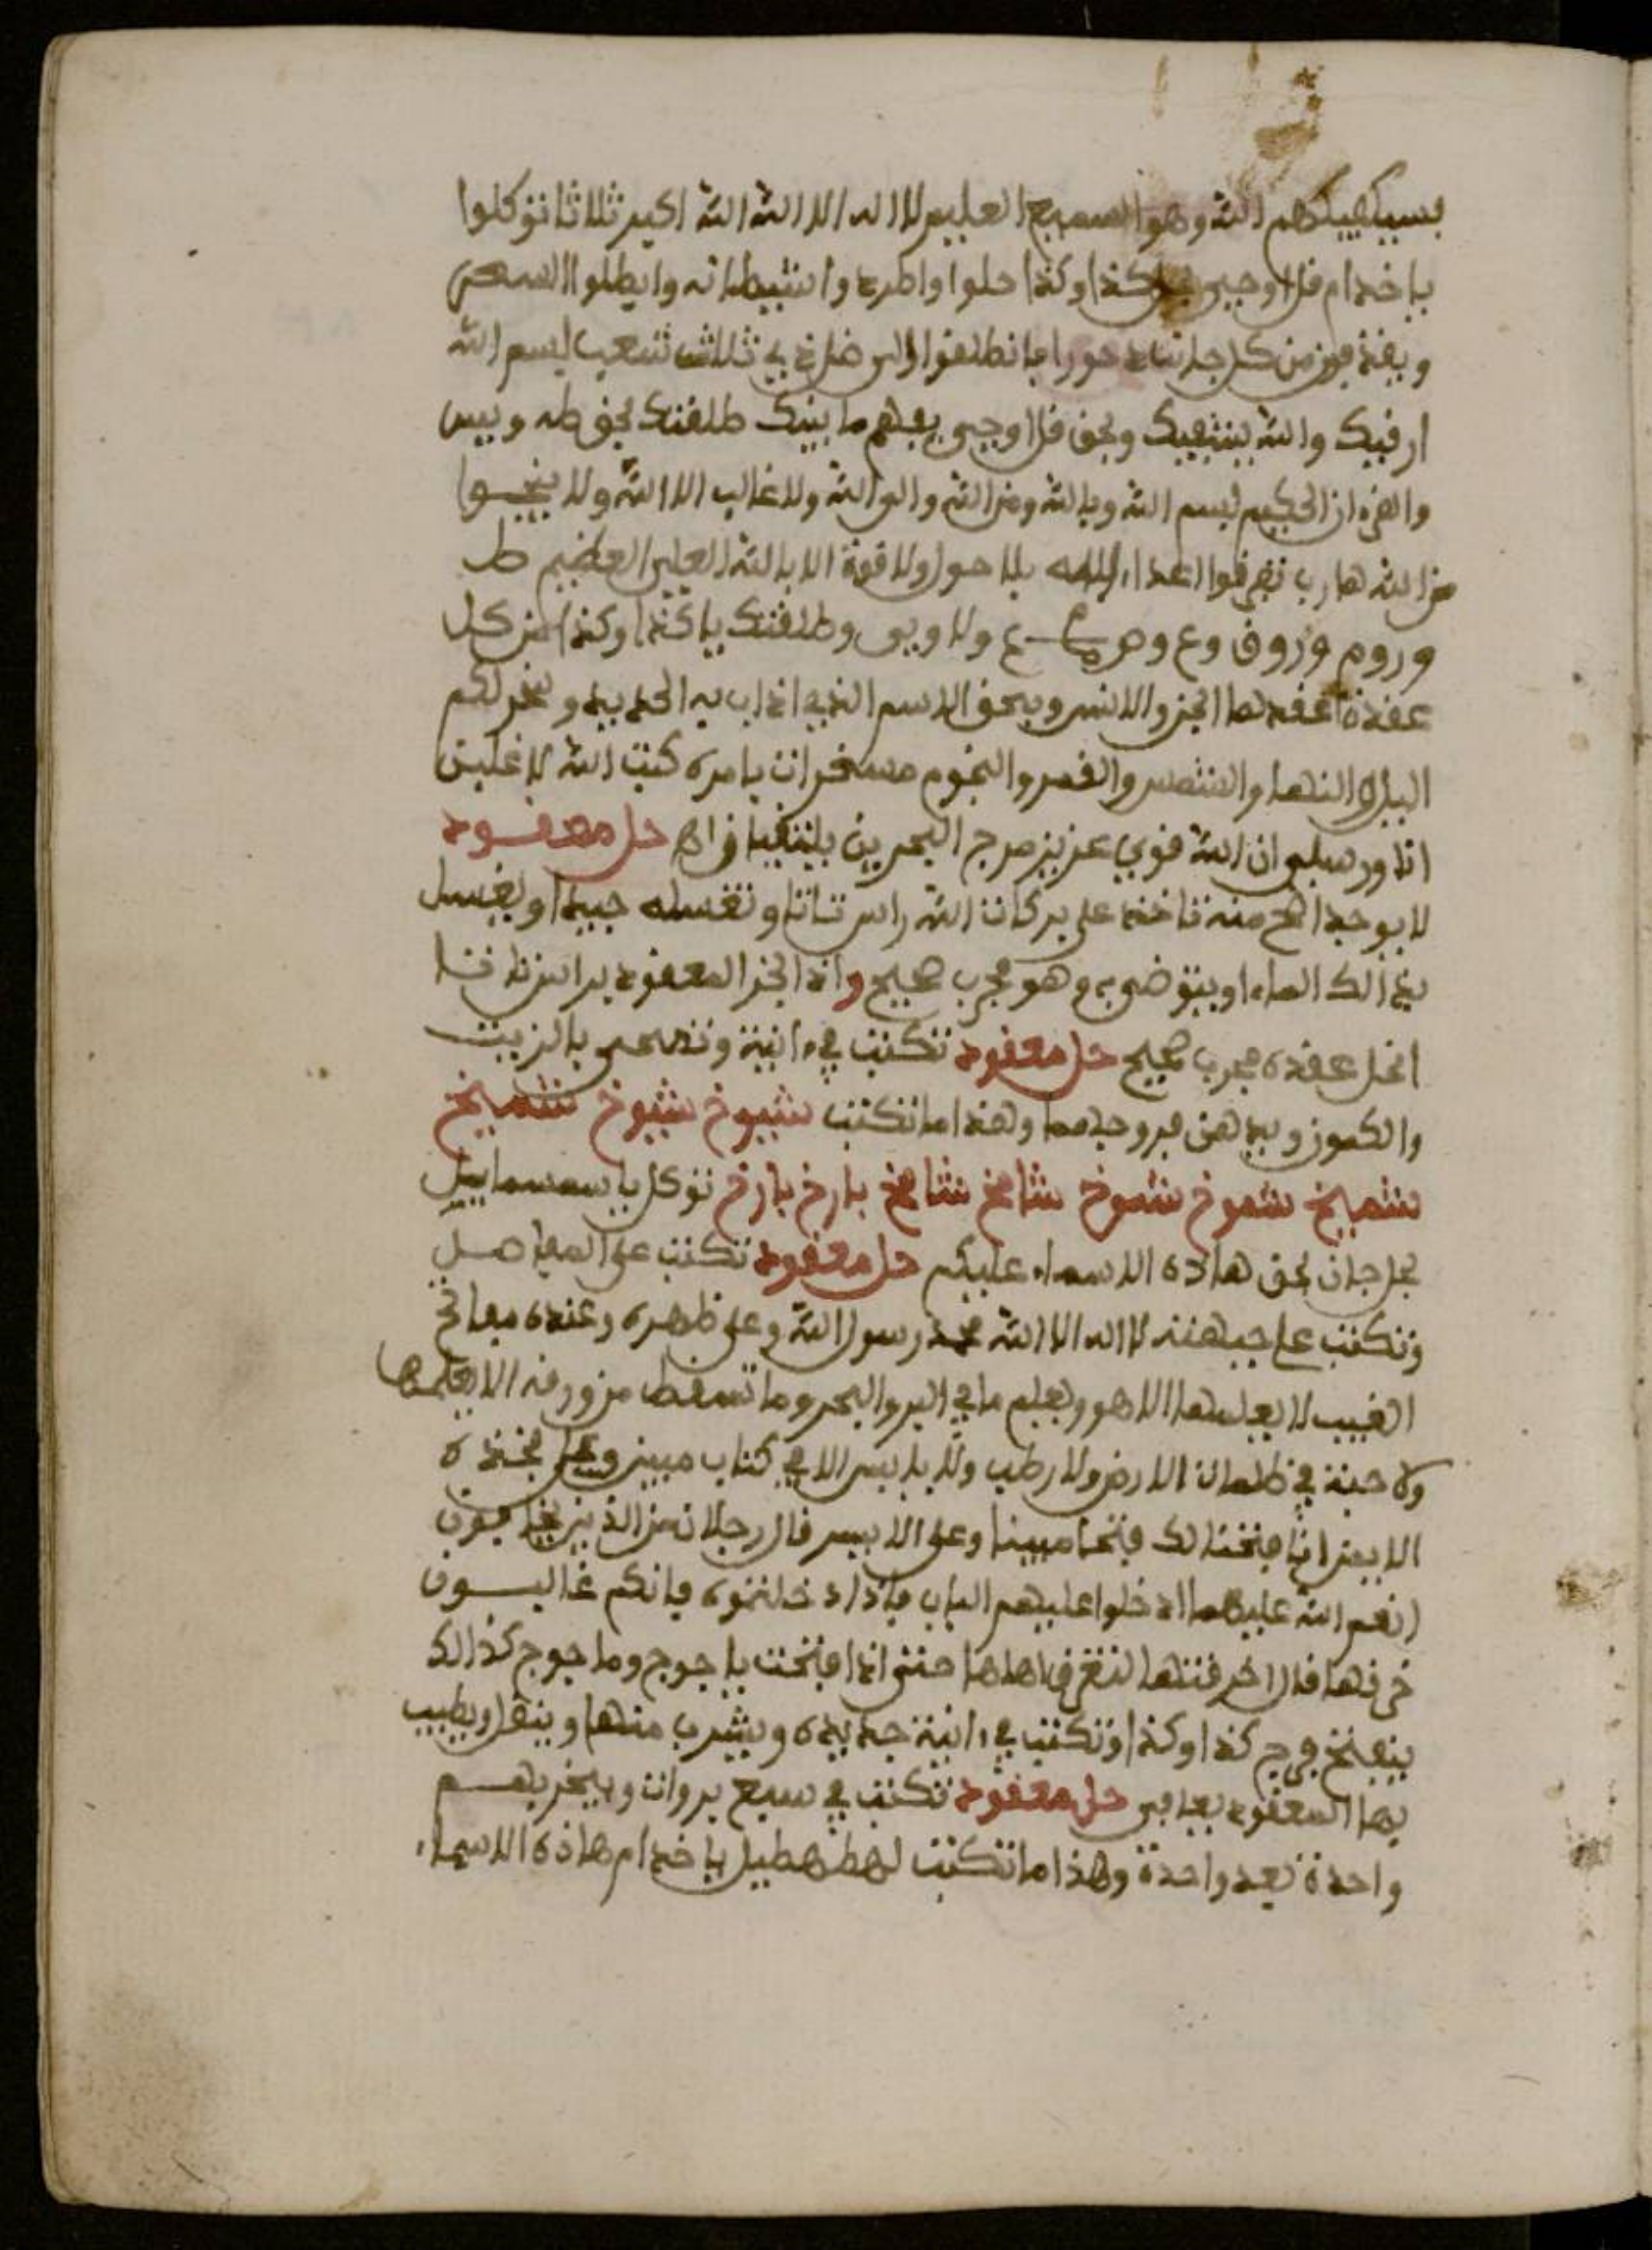 فسيكفيكهم الله وهو السميع العليم لا اله الا الله الله اكبر ثلاثا توكلوا
يا خدام قل اوحي بحل كذا وكذا حلوا واطردوا شيطانه وابطلوا السحر
ويقذفون من كل جانب دحورا فانطلقوا الى ظل ذي ثلاث شعب بسم الله
ارقيك والله يشفيك وبحق قل اوحي طلقتك بحق طه ويس
والقرءان الحكيم بسم الله وبالله ومن الله والى الله ولا غالب الا الله ولا ينجوا
من الله هارب تفرقوا اعداء الله بلا حول ولا قوة الا بالله العلي العظيم
وطلقتك يا كذا وكذا من كل
عقدة عقدها الجن والانس وبحق الاسم الذي اذاب به الحديد وسخر لكم
اليل والنهار والشمس والقمر والنجوم مسخرات بامره كتب الله لاغلبن
انا ورسلي ان الله قوي عزيز مرج البحرين يلتقيان اه حل معقود
لا يوجد اصح منه تاخذ على بركات الله راس وتغسله جيدا ويغسل
بذالك الماء او يتوضى به وهو مجرب صحيح واذا المعقود
انحل عقده مجرب صحيح حل معقود تكتب في ءانية وتمحى بالزيت
والكمون ويدهن بهما وهذا ما تكتب شيوخ شيوخ شميخ
شميخ شموخ شموخ شامخ شامخ بارخ بارخ توكل يا سمسمايل
بحق هاذه الاسماء عليكم حل معقود تكتب على المفاصل
وتكتب على جبهته لا اله الا الله محمد رسول الله وعلى ظهره وعنده مفاتح
الغيب لا يعلمها الا هو ويعلم ما في البر والبحر وما تسقط من ورقة الا يعلمها
ولا حبة في ظلمات الارض ولا رطب ولا يابس الا في كتاب مبين وعلى فخذه
الايمن انا فتحنا لك فتحا مبينا وعلى الايسر قال رجلان من الذين يخافون
انعم الله عليهما ادخلوا عليهم الباب فاذا دخلتموه فانكم غالبون
خرقها قال اخرقتها لتغرق اهلها حتى اذا فتحت ياجوج وماجوج كذالك
ينفتح فرج كذا وكذا وتكتب في ءانية جديدة ويشرب منها
بها المعقود حل معقود تكتب في سبع بروات ويبخر بهم
واحدة بعد واحدة وهذا ما تكتب لهطهطيل يا خدام هاذه الاسماء